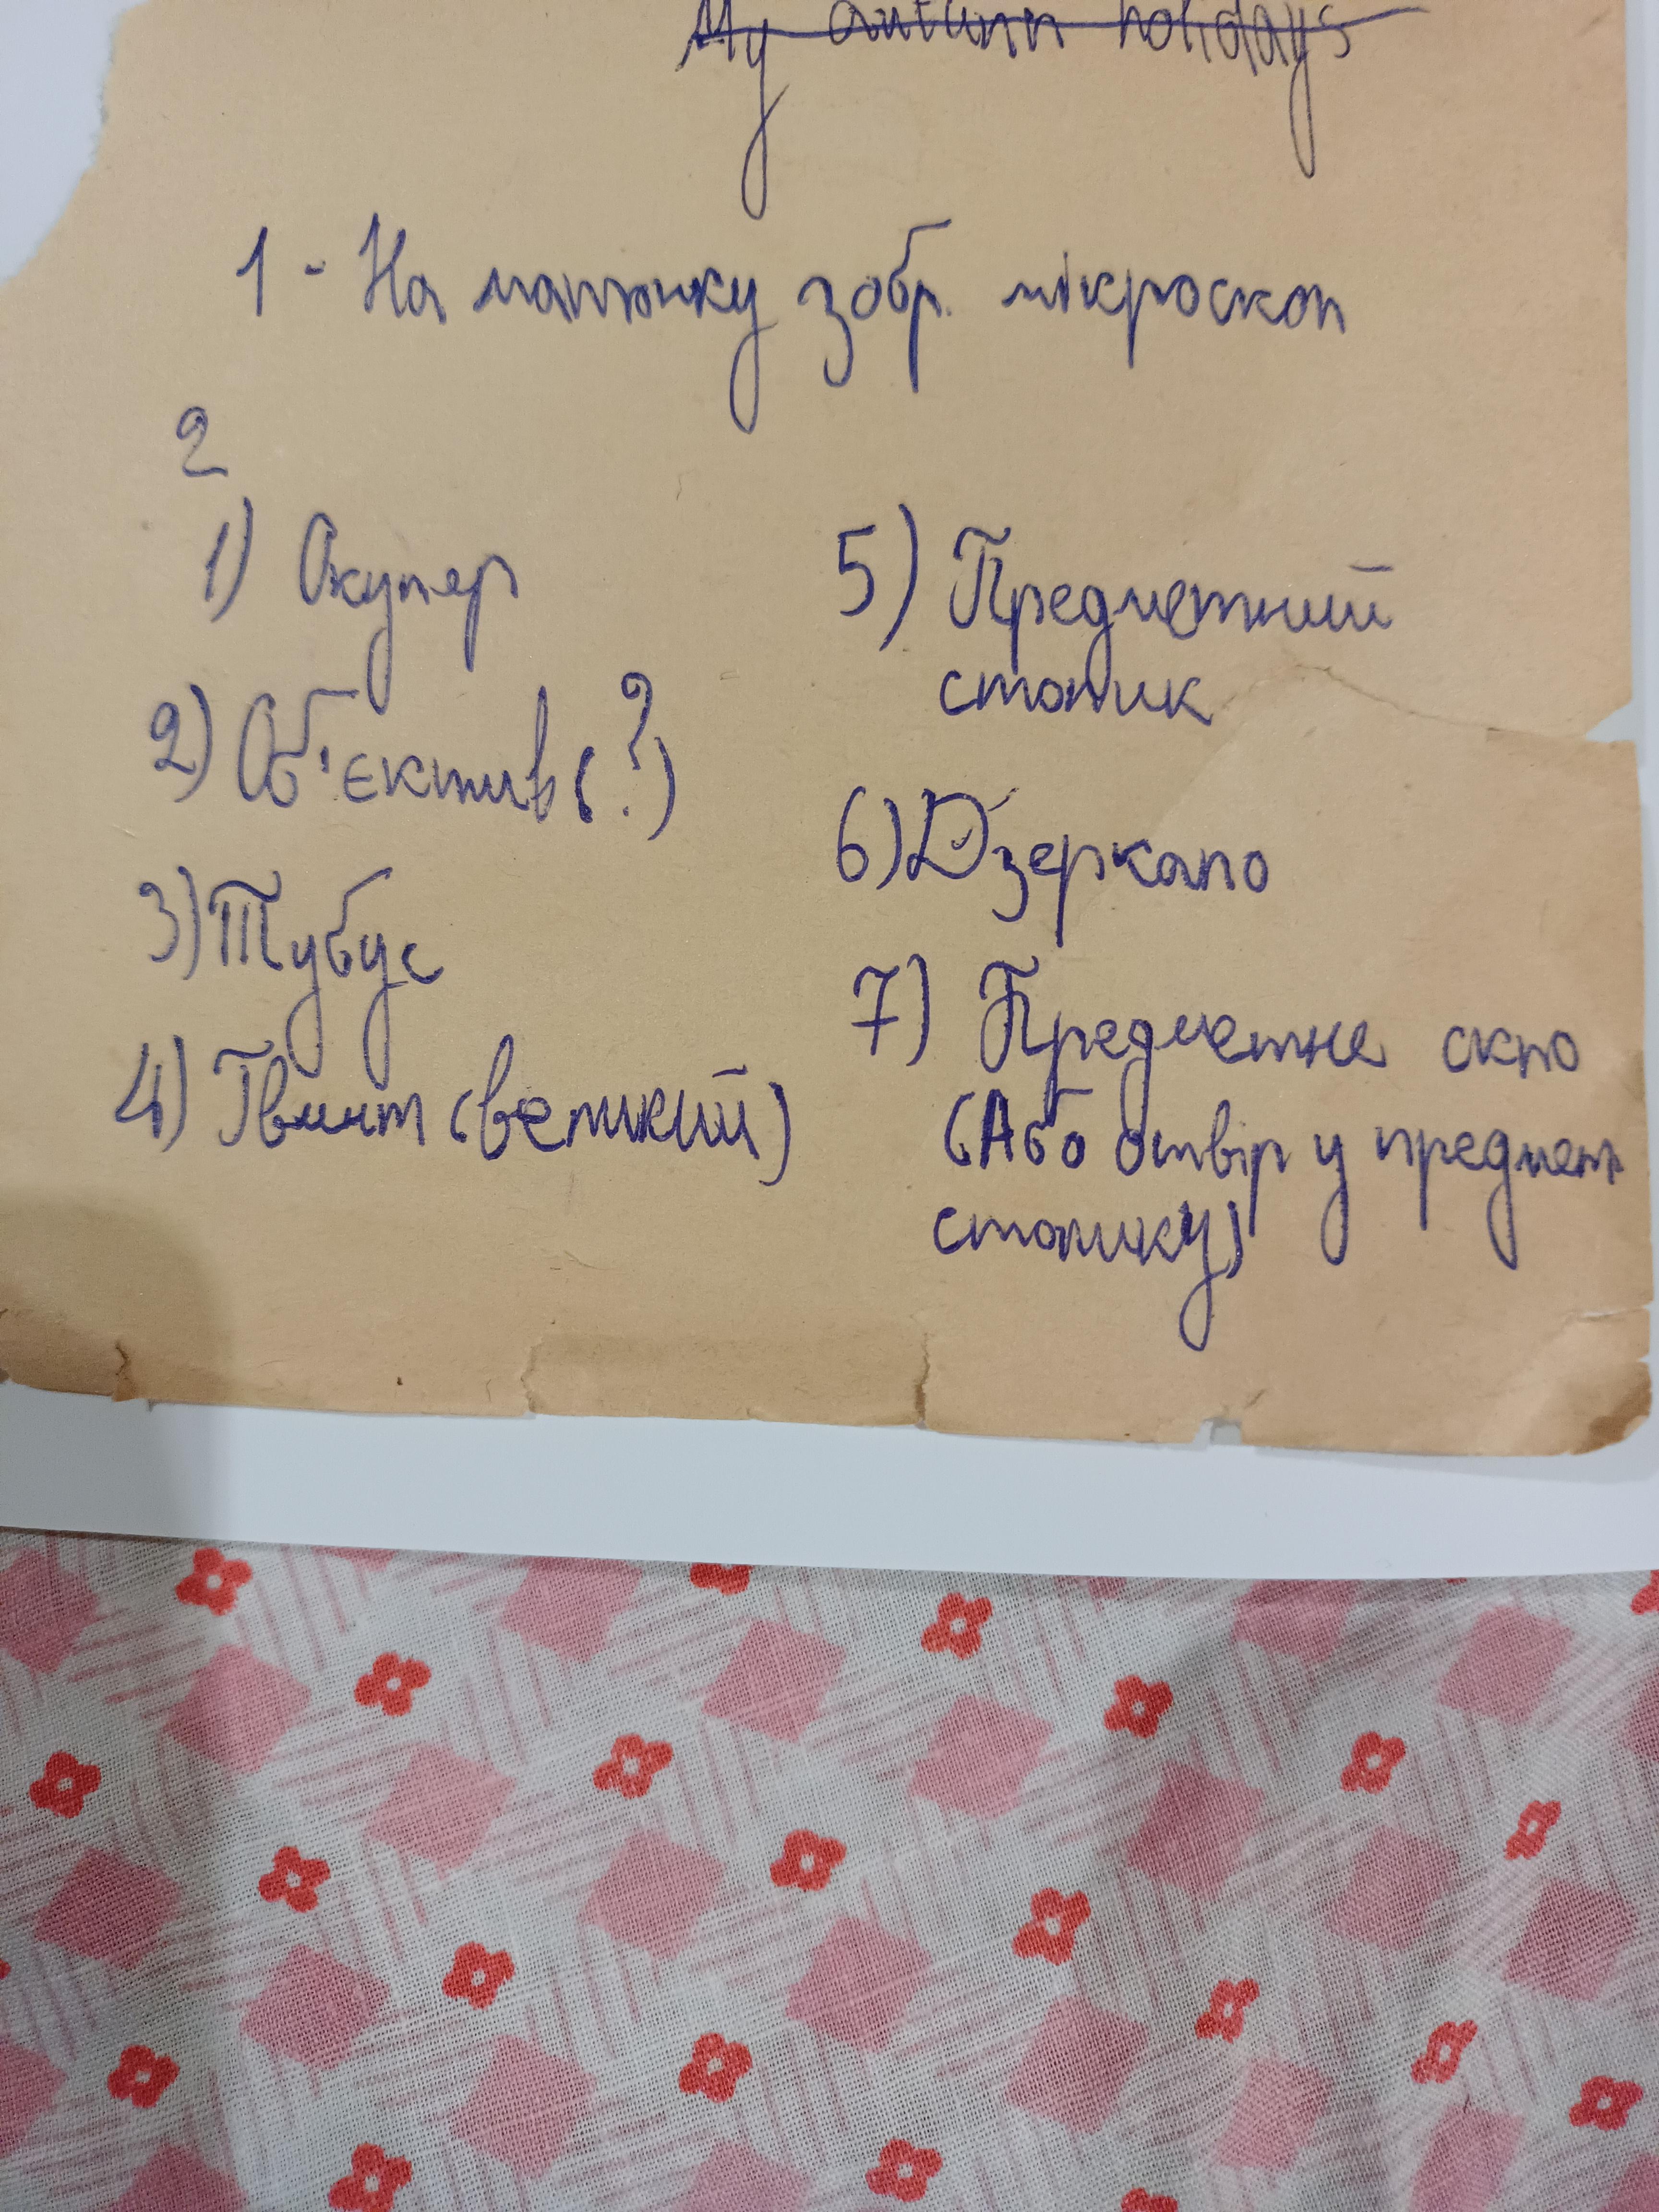 My autumn holidays
1 - На малюнку зобр. мікроскоп
2
1) Окуляр
2) Об'єктив (?)
3) Тубус
4) Гвинт (великий)
5) Предметний
столик
6) Дзеркало
7) Предметне скло
(Або отвір у предмет
столику)